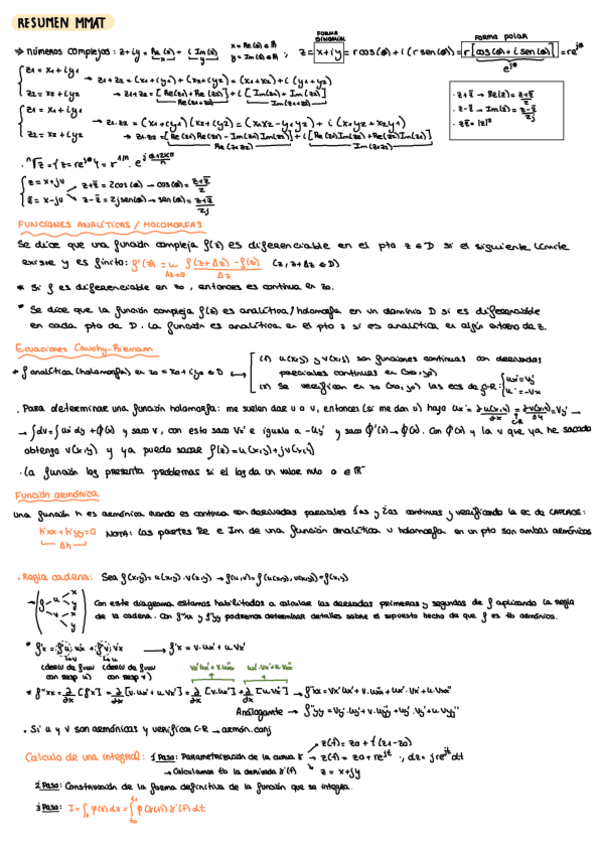 RESUMEN MMAT
→ Números complejos: z+iy = Re(z) + i Im(z) x = Re(z) ∈ ℝ y = Im(z) ∈ ℝ ; z = x+iy = r cos(θ) + i (r sen(θ)) = r [cos(θ) + i sen(θ)] = re^jθ
FORMA BINOMIAL
FORMA POLAR
e^jθ
z1 = x1 + iy1
z2 = x2 + iy2
→ z1+z2 = (x1+iy1) + (x2+iy2) = (x1+x2) + i (y1+y2)
→ z1+z2 = [Re(z1) + Re(z2)] + i [Im(z1) + Im(z2)]
Re(z1+z2) Im(z1+z2)
· z+z̄ → Re(z) = (z+z̄)/2
· z-z̄ → Im(z) = (z-z̄)/2j
· zz̄ = |z|²
z1 = x1 + iy1
z2 = x2 + iy2
→ z1·z2 = (x1+iy1)(x2+iy2) = (x1x2 - y1y2) + i (x1y2 + x2y1)
→ z1·z2 = [Re(z1)Re(z2) - Im(z1)Im(z2)] + i [Re(z1)Im(z2) + Re(z2)Im(z1)]
Re(z1z2) Im(z1z2)
· ⁿ√z = {z = re^jθ} = r^1/n · e^j(θ+2kπ)/n
z = x+jy → z+z̄ = 2cos(θ) → cos(θ) = (z+z̄)/2
z̄ = x-jy → z-z̄ = 2jsen(θ) → sen(θ) = (z-z̄)/2j
FUNCIONES ANALÍTICAS / HOLOMORFAS
Se dice que una función compleja f(z) es diferenciable en el pto z ∈ D si el siguiente límite
existe y es finito: f'(z) = lim Δz→0 (f(z+Δz) - f(z))/Δz (z, z+Δz ∈ D)
* Si f es diferenciable en z0, entonces es continua en z0.
* Se dice que la función compleja f(z) es analítica/holomorfa en un dominio D si es diferenciable
en cada pto de D. La función es analítica en el pto z si es analítica en algún entorno de z.
Ecuaciones Cauchy-Riemann
* f analítica (holomorfa) en z0 = x0+iy0 ∈ D ⟷ (1) u(x,y) y v(x,y) son funciones continuas con derivadas
parciales continuas en (x0,y0)
(2) Se verifican en z0 (x0,y0) las ecs de C-R: { ux' = vy' u' = -vx
· Para determinar una función holomorfa: me suelen dar u o v, entonces (si me dan u) hago ux' = ∂u(x,y)/∂x = ∂v(x,y)/∂y = vy' →
C-R
→ ∫dv = ∫ux' dy + φ(x) y saco v, con esto saco vx' e igualo a -uy' y saco φ'(x) → φ(x). Con φ(x) y la v que ya he sacado
obtengo v(x,y) y ya puedo sacar f(z) = u(x,y) + jv(x,y)
· La función log presenta problemas si el log da un valor nulo o ∈ ℝ⁻
Función armónica
Una función h es armónica cuando es continua con derivadas parciales 1as y 2as continuas y verificando la ec de LAPLACE:
h''xx + h''yy = 0 NOTA: Las partes Re e Im de una función analítica u holomorfa en un pto son ambas armónicas
Δh
· Regla cadena: Sea f(x,y) = u(x,y) · v(x,y) → f(u,v) = f(u(x,y), v(x,y)) = f(x,y)
f u v x y x y
→ Con este diagrama estamos habilitados a calcular las derivadas primeras y segundas de f aplicando la regla
de la cadena. Con f''xx y f''yy podremos determinar detalles sobre el supuesto hecho de que f es fc armónica.
* f'x = f'u · ux' + f'v · vx' → f'x = v·ux' + u·vx'
(deriv de f=uv con resp u) (deriv de f=uv con resp v)
vx'ux' + v·uxx'' ux'·vx' + u·vxx''
* f''xx = ∂/∂x [f'x] = ∂/∂x [v·ux' + u·vx'] = ∂/∂x [v·ux'] + ∂/∂x [u·vx'] → f''xx = vx'ux' + v·uxx'' + ux'·vx' + u·vxx''
Análogamente → f''yy = vy'·uy' + v·uyy'' + uy'·vy' + u·vyy''
· Si u y v son armónicas y verifican C-R → armón. conj
Calculo de una integral: 1 Paso: Parametrización de la curva γ → z(t) = z0 + t (z1-z0)
→ z(t) = z0 + re^jt ; dz = jre^jt dt
→ Calculamos tb la derivada γ'(t) z = x+jy
2 Paso: Construcción de la forma definitiva de la función que se integra.
3 Paso: I = ∫ f(z) dz = ∫ f(γ(t)) γ'(t) dt